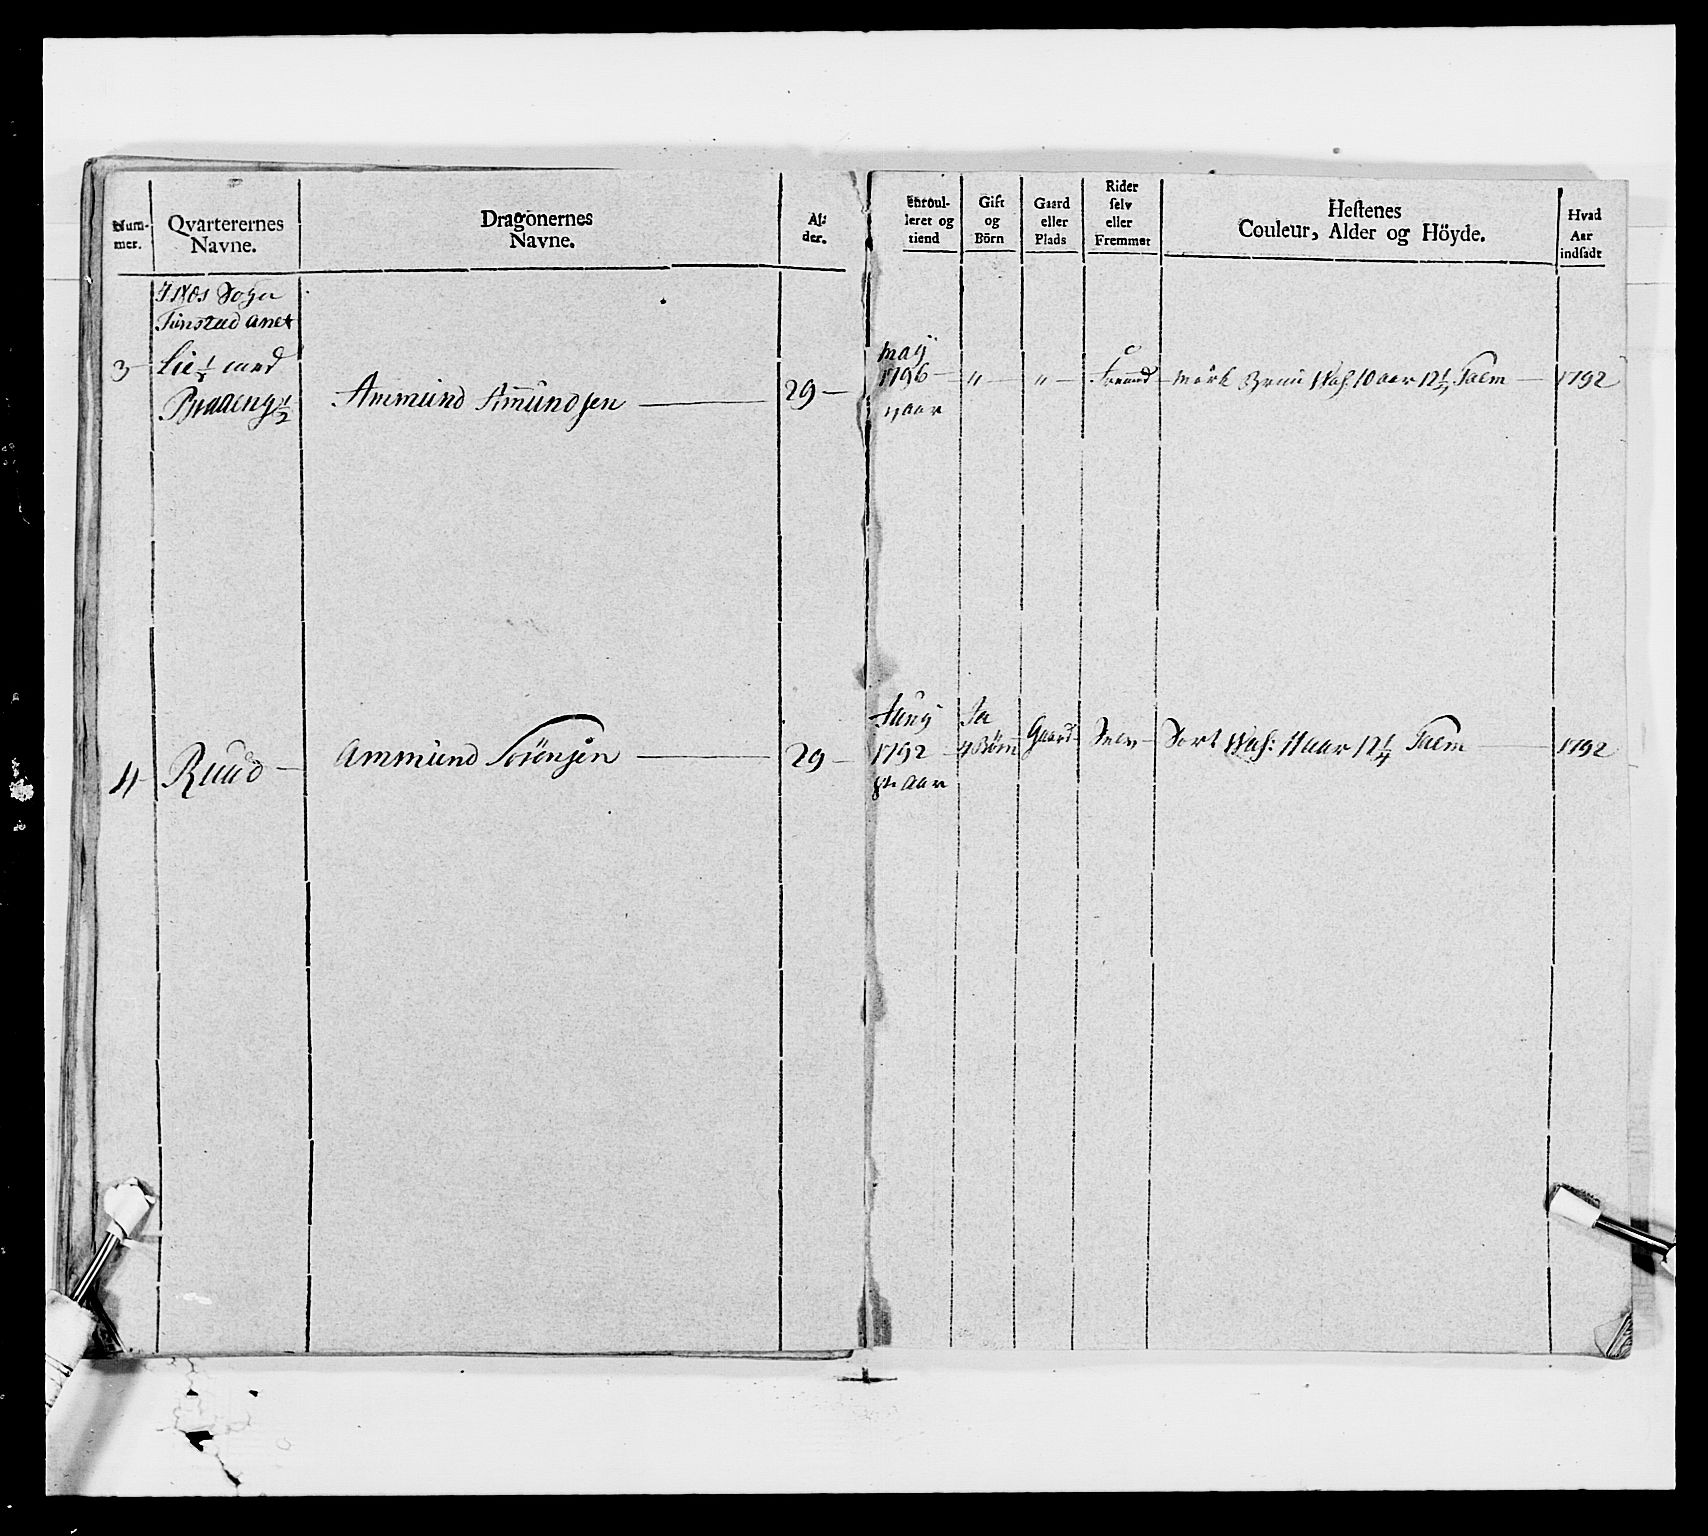 Num-
mer.
Qvarterernes
Navne.
Dragonernes
Navne.
Al-
der.
Enroul-
leret og
tiend
Gift
og
Börn
Gaard
eller
Plads
Rider
selv
eller
Fremmet
Hestenes
Couleur, Alder og Höyde.
Hvad
Aar
indsadt
Sogn
Anex
3
Lie ½ med
Braaeng ½
Ammund Amundsen
29
Maÿ
1796
4 aar
"
"
Fremd
Mörk Brun Wal: 10 aar 12½ Qalm
1792
4
Ruud
Ammund Sörensen
29
Junÿ
1792
8te Aar
Ja
4 Börn
Gaard
Selv
Sort Wal: 11 aar 12¼ Qalm
1792